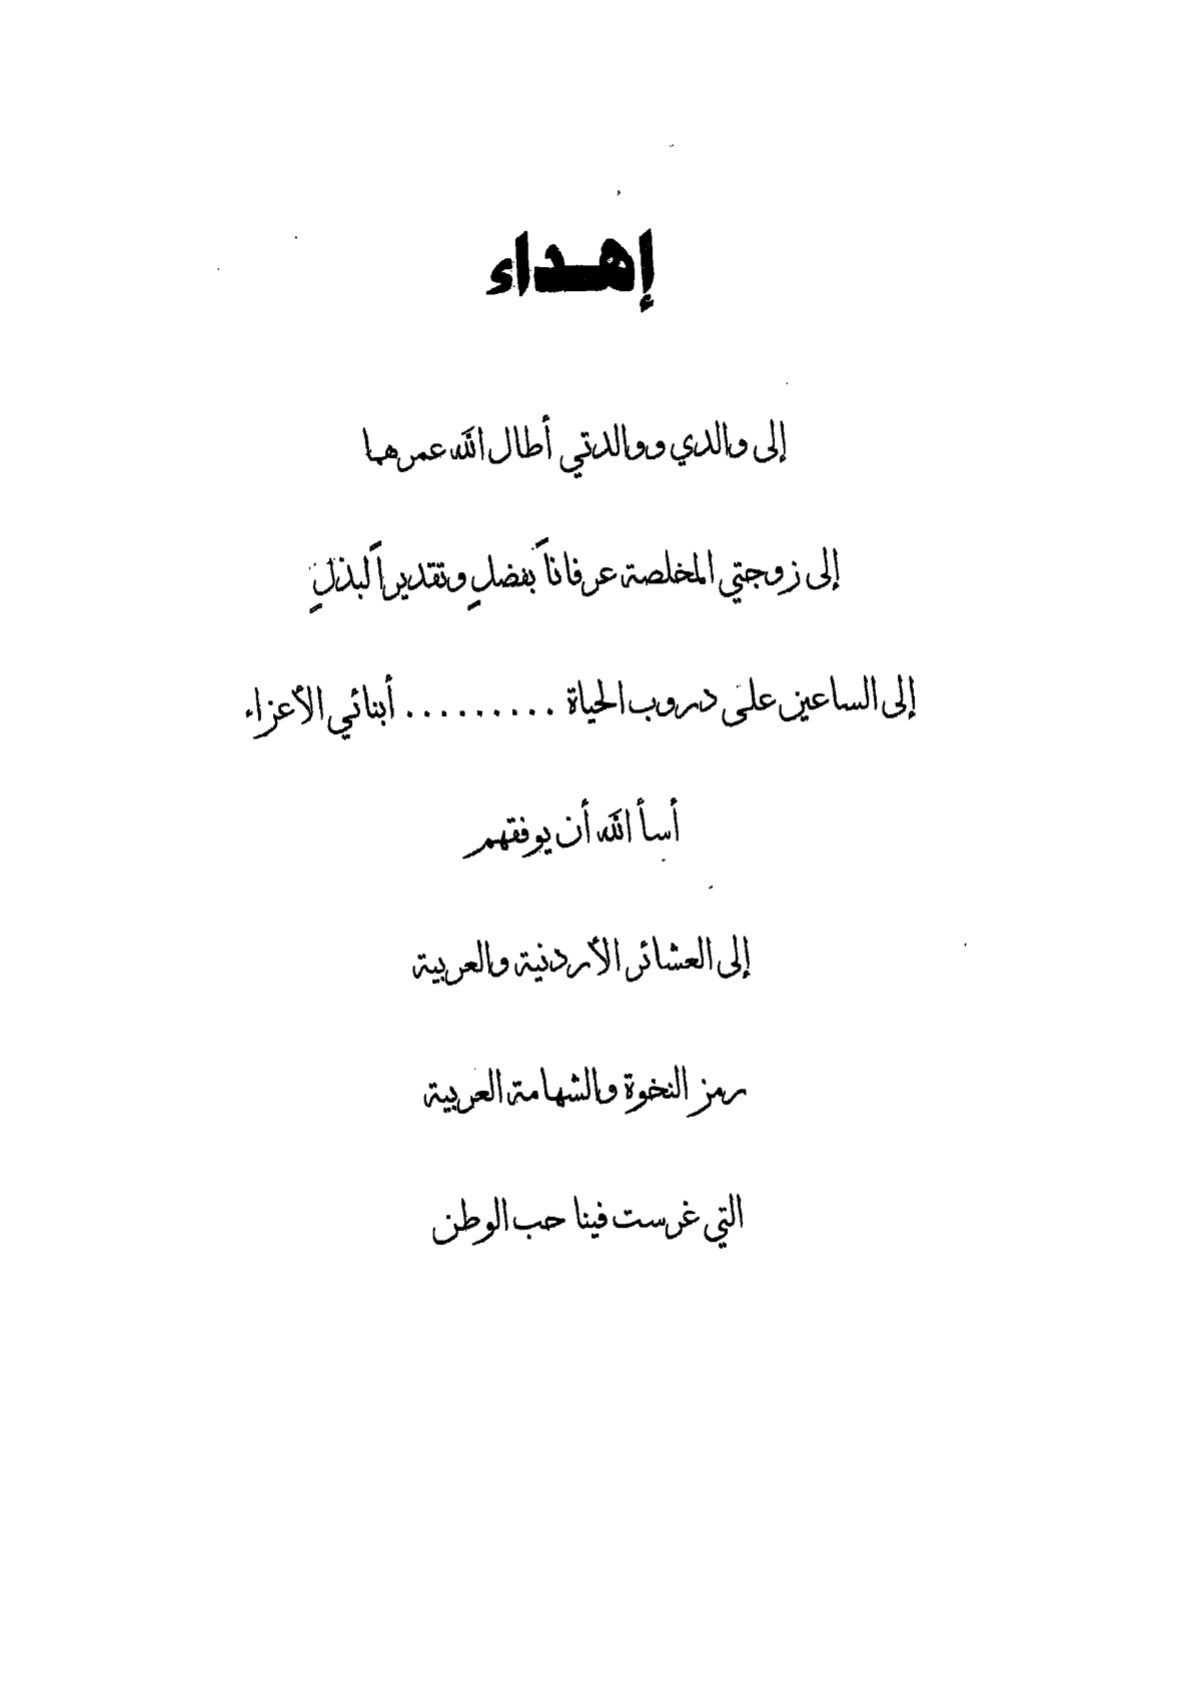 إهداء
إلى والدي ووالدتي أطال الله عمرهما
إلى زوجتي المخلصة عرفاناً بفضلٍ وتقديراً لبذلٍ
إلى الساعين على دروب الحياة ......... أبنائي الأعزاء
أسأ الله أن يوفقهم
إلى العشائر الأردنية والعربية
رمز النخوة والشهامة العربية
التي غرست فينا حب الوطن